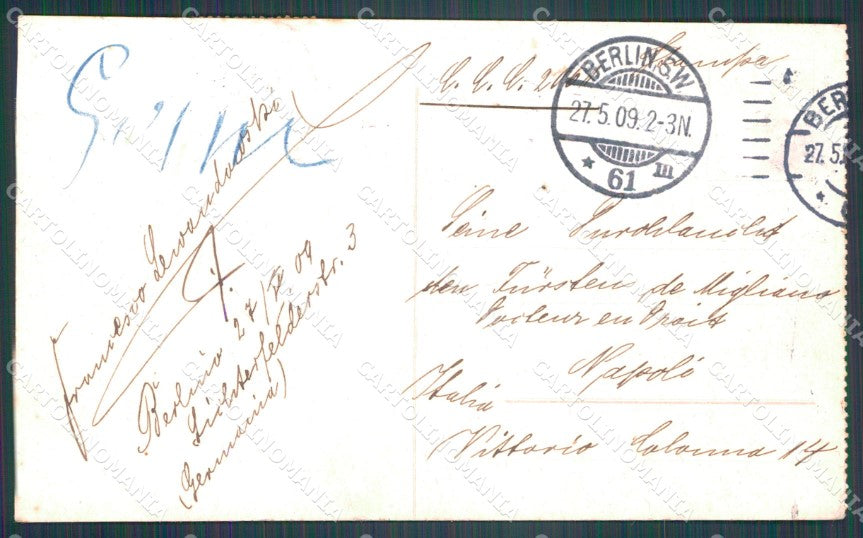 Francesco Lewandowski
Berlino 27/V 09
Lichterfelderstr. 3
(Germania)
C. C. C. Stampa
BERLIN S.W
27.5.09. 2-3N.
* 61 m
BER
27.5
Seine Durchlaucht
den Fürsten de Migliano
Docteur en Droit
Napoli
Italia
Vittorio Colonna 14
CARTOLINOMANIA